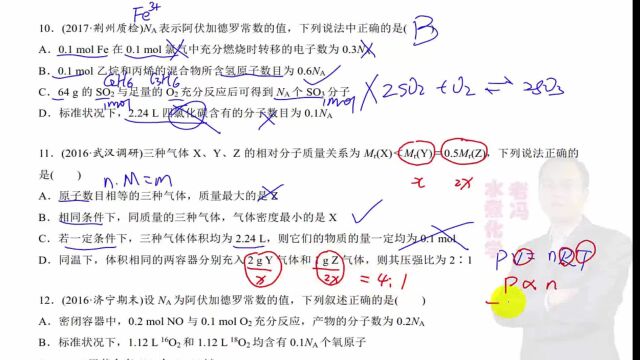 Fe³⁺
10. (2017·荆州质检)N_A 表示阿伏加德罗常数的值，下列说法中正确的是( B
A. 0.1 mol Fe 在 0.1 mol 氯气中充分燃烧时转移的电子数为 0.3N_A
B. 0.1 mol 乙烷和丙烯的混合物所含氢原子数目为 0.6N_A
C₂H₆ C₃H₆
C. 64 g 的 SO₂ 与足量的 O₂ 充分反应后可得到 N_A 个 SO₃ 分子
1mol 1mol 2SO₂ + O₂ ⇌ 2SO₃
D. 标准状况下，2.24 L 四氯化碳含有的分子数目为 0.1N_A
11. (2016·武汉调研)三种气体 X、Y、Z 的相对分子质量关系为 Mr(X)<Mr(Y)=0.5Mr(Z)，下列说法正确的
是( )
n·M=m
x 2x
A. 原子数目相等的三种气体，质量最大的是 Z
B. 相同条件下，同质量的三种气体，气体密度最小的是 X
C. 若一定条件下，三种气体体积均为 2.24 L，则它们的物质的量一定均为 0.1 mol
D. 同温下，体积相同的两容器分别充入 2 g Y 气体和 1 g Z 气体，则其压强比为 2∶1
x 2x = 4:1
PV = nRT
P ∝ n
老冯
水煮化学
12. (2016·济宁期末)设 N_A 为阿伏加德罗常数的值，下列叙述正确的是( )
A. 密闭容器中，0.2 mol NO 与 0.1 mol O₂ 充分反应，产物的分子数为 0.2N_A
B. 标准状况下，1.12 L ¹⁶O₂ 和 1.12 L ¹⁸O₂ 均含有 0.1N_A 个氧原子